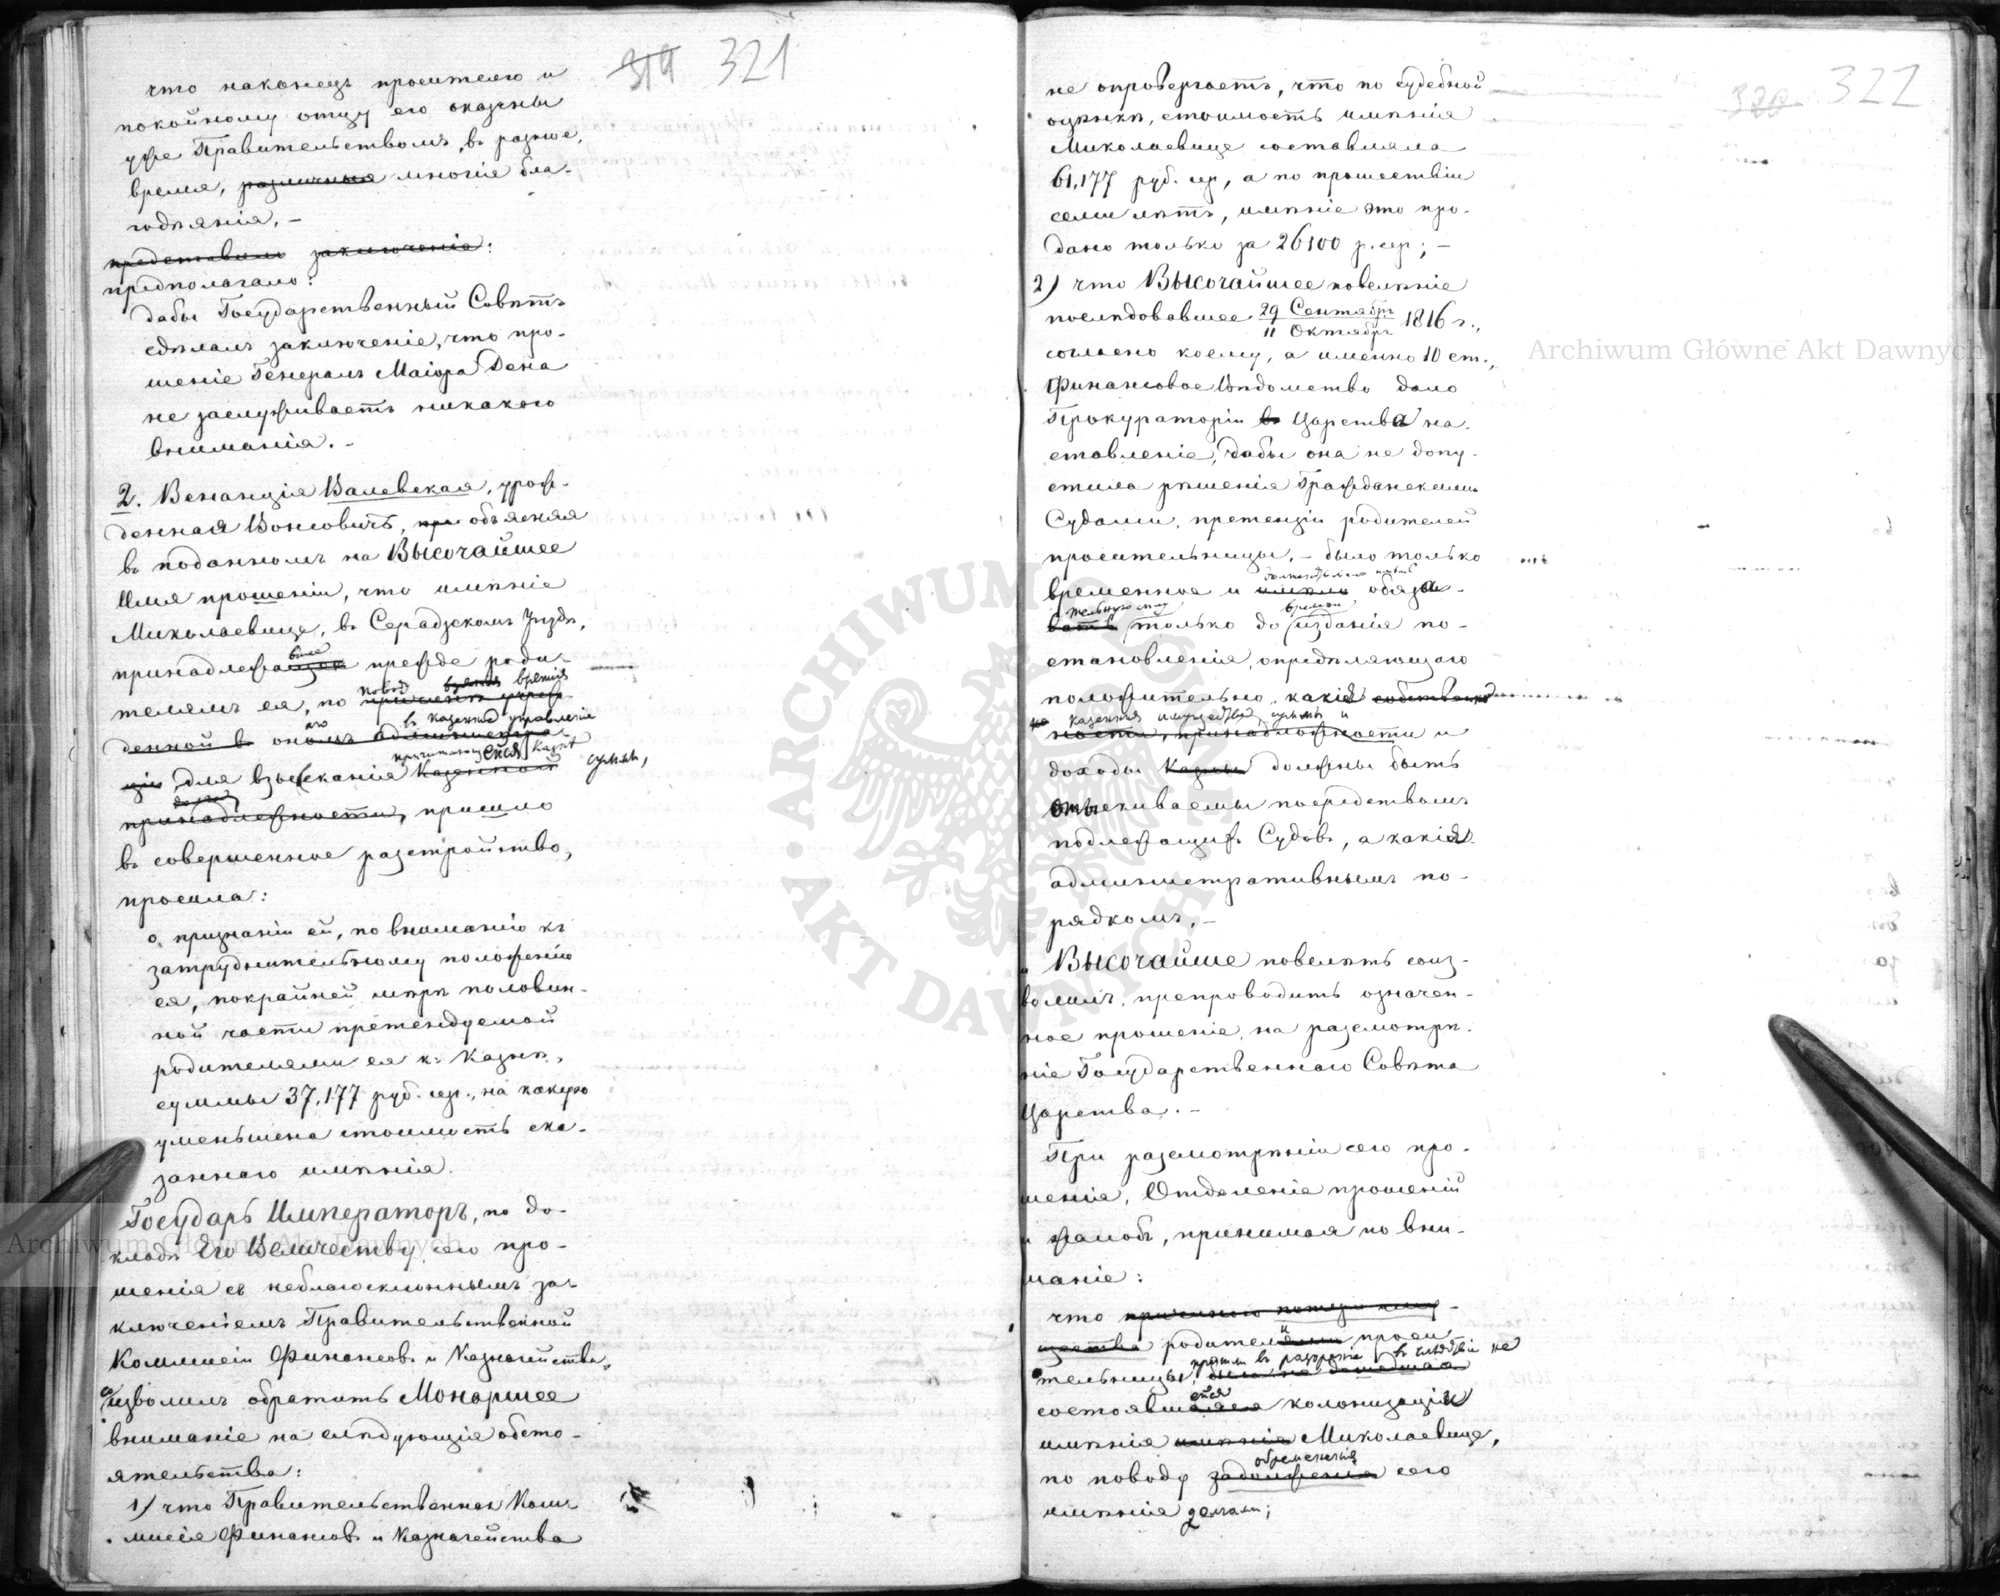 319 321
что наконецъ просителю и
покойному отцу его оказаны
уже Правительствомъ, въ разное
время, различныя многія бла-
годѣянія. –
представило заключеніе:
предполагало:
дабы Государственный Совѣтъ
сдѣлалъ заключеніе, что про-
шеніе Генералъ Маіора Дена
не заслуживаетъ никакого
вниманія. –
2. Венанція Валевская, урож-
денная Вонсовичъ, при объясняя
въ поданномъ на Высочайшее
Имя прошеніи, что имѣніе
Миколаевице, въ Серадзскомъ Уѣздѣ,
принадлежащее прежде роди-
вшее
телямъ ея, по
повод взятія
денной въ ономъ администра-
въ казенное управленіе
ціи для взысканія Казенной
причитающейся Казнѣ суммы,
принадлежности, пришло
въ совершенное разстройство,
просила:
о признаніи ей, по вниманію къ
затруднительному положенію
ея, покрайней мѣрѣ половин-
ной части претендуемой
родителями ея къ Казнѣ,
суммы 37,177 руб. сер., на какую
уменьшена стоимость ска-
заннаго имѣнія.
Государь Императоръ, по до-
кладѣ Его Величеству сего про-
шенія съ неблагосклоннымъ за-
ключеніемъ Правительственной
Коммисіи Финансовъ и Казначейства,
соизволилъ обратить Монаршее
вниманіе на слѣдующія обсто-
ятельства:
1) что Правительственная Ком-
мисія Финансовъ и Казначейства
320 322
не опровергаетъ, что по судебной
оцѣнкѣ, стоимость имѣнія
Миколаевице составляла
61,177 руб. сер, а по прошествіи
семи лѣтъ, имѣніе это про-
дано только за 26100 р. сер; –
2) что Высочайшее повелѣніе
послѣдовавшее 29 Сентября / 11 Октября 1816 г.,
согласно коему, а именно 10 ст.,
Финансовое Вѣдомство дало
Прокураторіи въ Царства на-
ставленіе, дабы она не допу-
стила рѣшенія Гражданскими
Судами, претензіи родителей
просительницы, – было только
временное и имѣло обяза-
тельную силу время
только до изданія по-
становленія, опредѣляющаго
положительно, какія собствен-
казенныя имущества, суммы и
ности, принадлежности и
доходы Казны должны быть
отыскиваемы посредствомъ
подлежащихъ Судовъ, а какія
административнымъ по-
рядкомъ, –
Высочайше повелѣть соиз-
волилъ, препроводить означен-
ное прошеніе, на разсмотрѣ-
ніе Государственнаго Совѣта
Царства. –
При разсмотрѣніи сего про-
шенія, Отдѣленіе прошеній
и жалобъ, принимая во вни-
маніе:
что причиною потери иму-
щества родителями проси-
и
тельницы, была не
пришли въ раззореніе въ слѣдствіе не
состоявшаяся колонизація
ейся
имѣнія имѣнія Миколаевице,
обремененія
по поводу задолженія сего
имѣнія долгами;
Archiwum Główne Akt Dawnych
Archiwum Główne Akt Dawnych
ARCHIWUM GŁÓWNE AKT DAWNYCH